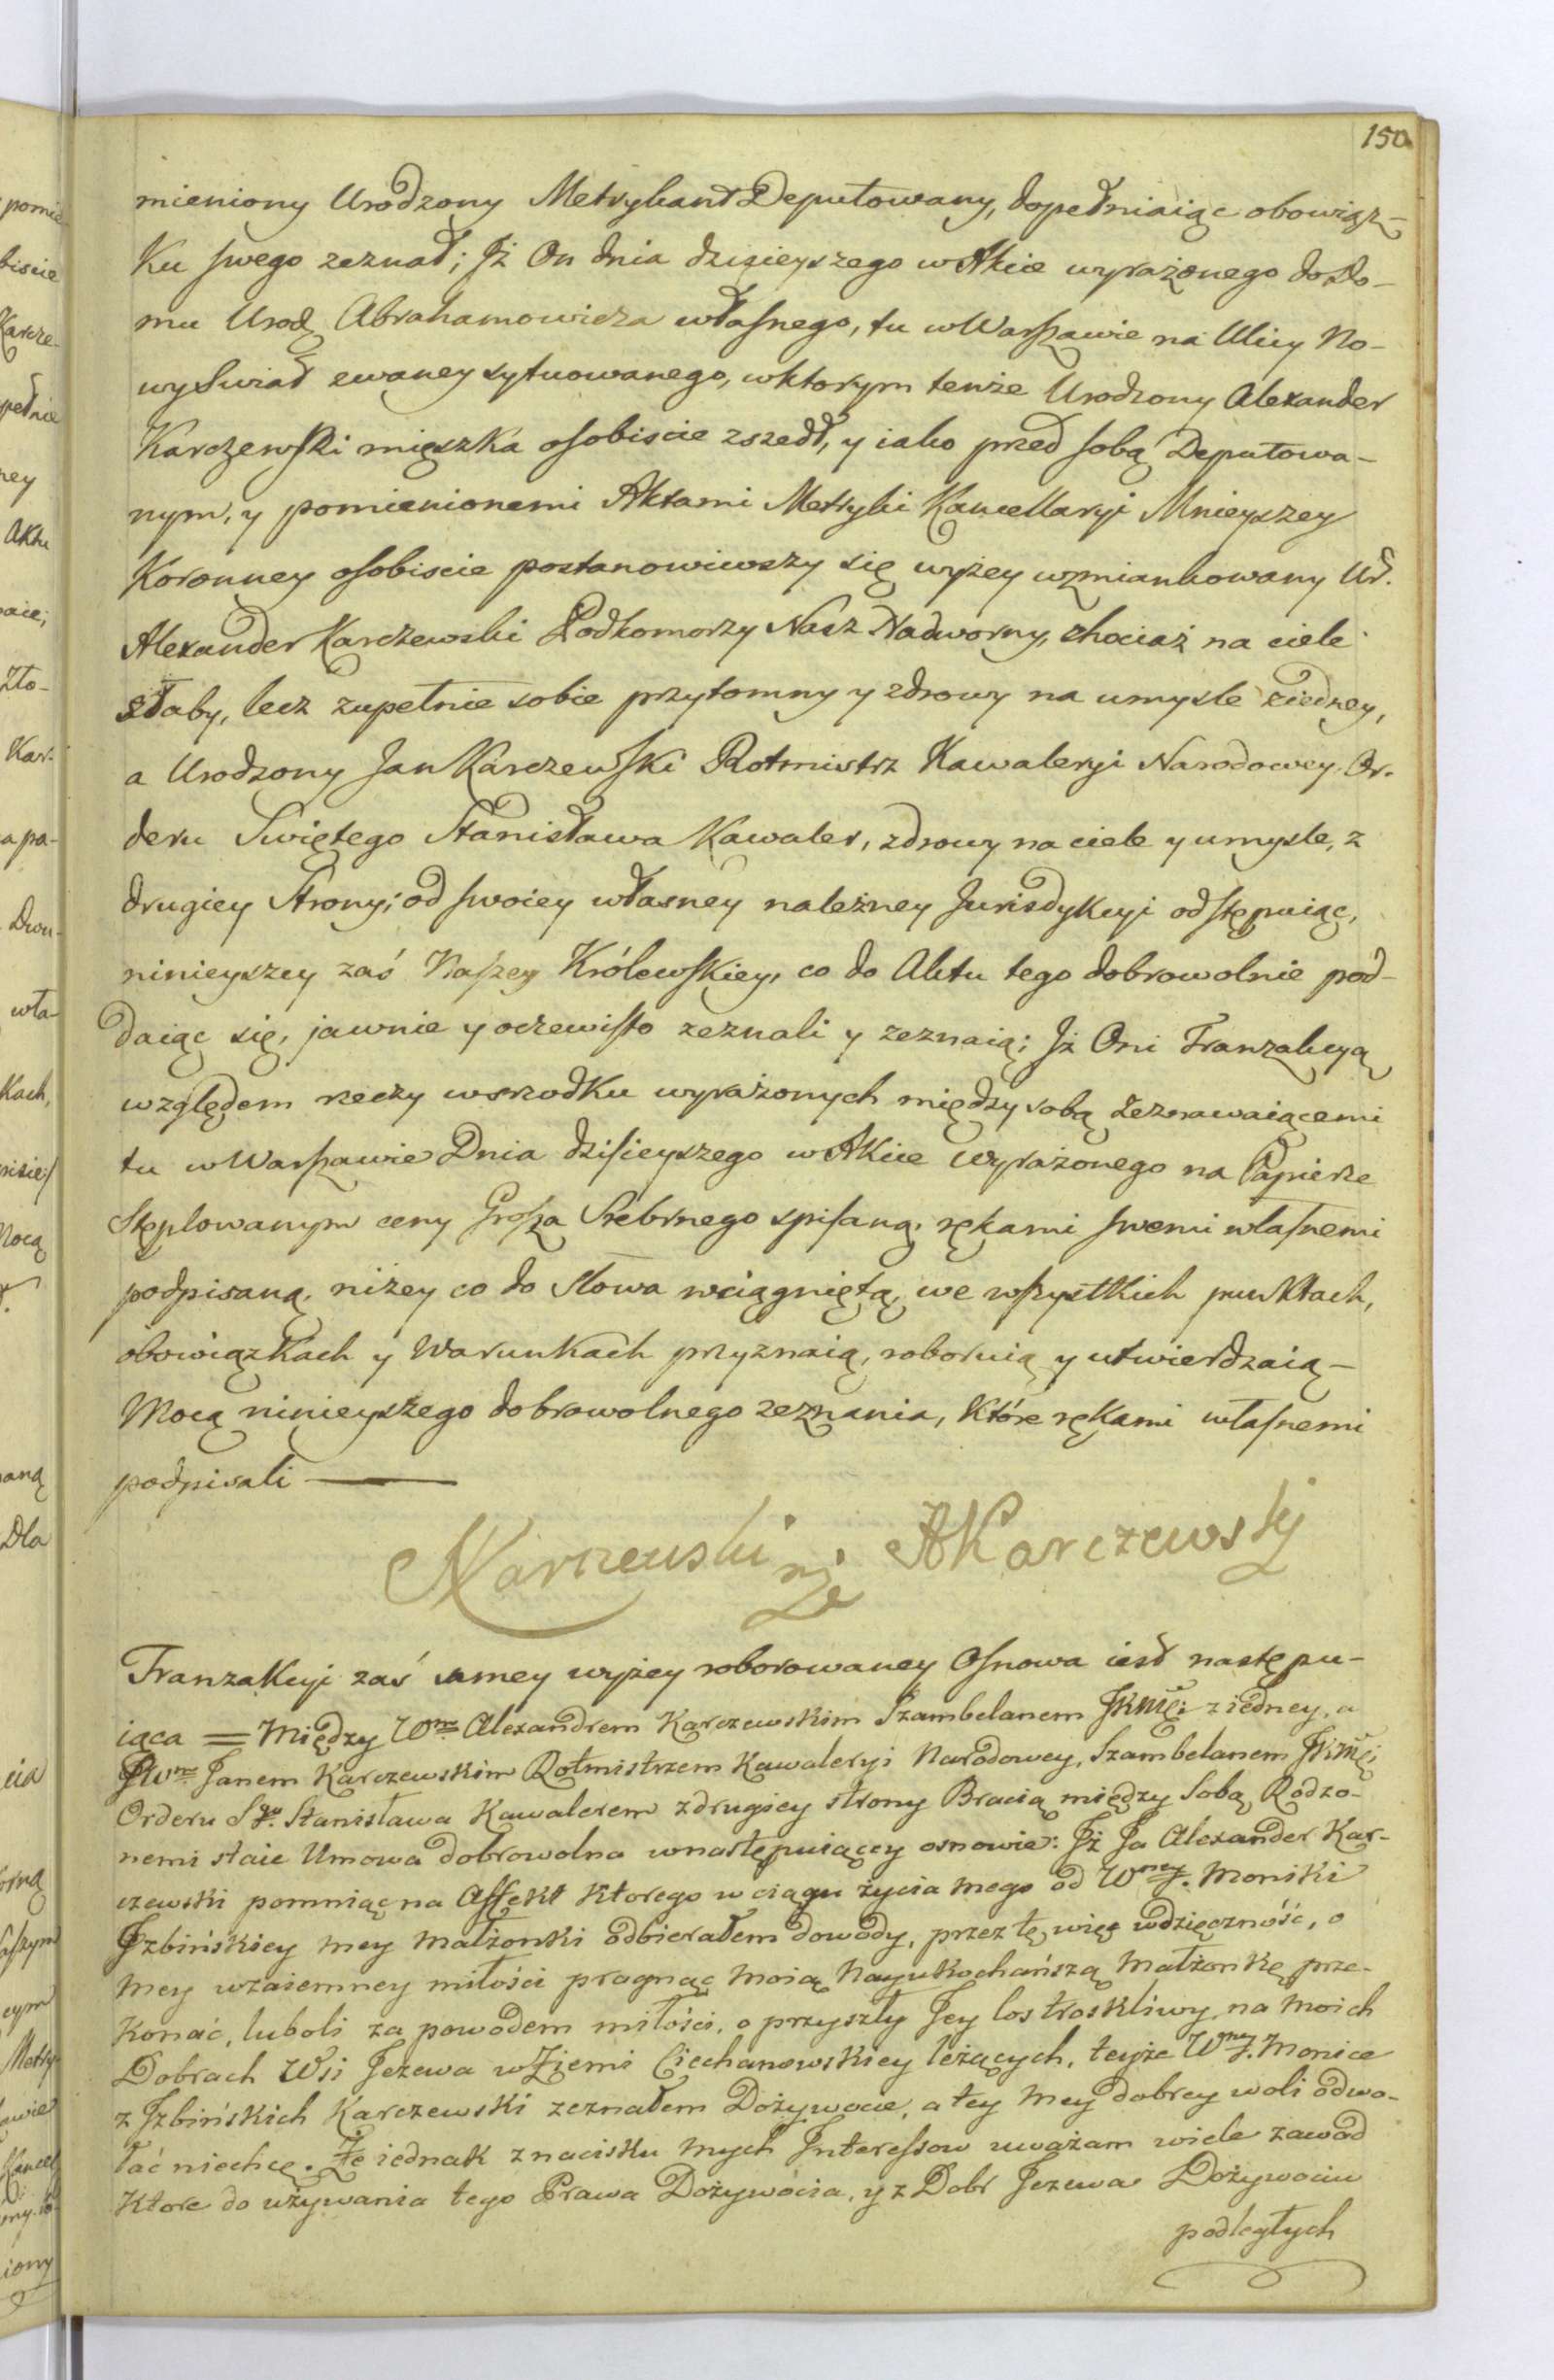 150
mieniony Urodzony Metrykant Deputowany, dopełniaiąc obowiąz-
ku swego zeznał; Jż On dnia dzisieyszego w Akcie wyrażonego do Do-
mu Urod. Abrahamowicza własnego, tu w Warszawie na Ulicy No-
wy Swiat zwaney sytuowanego, w ktorym tenże Urodzony Alexander
Karczewski mięszka osobiscie zszedł, y iako przed sobą Deputowa-
nym, y pomienionemi Aktami Metryki Kancellaryi Mnieyszey
Koronney osobiscie postanowiwszy się wyżey wzmiankowany Ur.
Alexander Karczewski Podkomorzy Nasz Nadworny, chociaż na ciele
słaby, lecz zupełnie sobie przytomny y zdrowy na umysle z iedney,
a Urodzony Jan Karczewski Rotmistrz Kawaleryi Narodowey Or-
deru Swiętego Stanisława Kawaler, zdrowy na ciele y umysle, z
drugiey Strony; od swoiey własney należney Jurisdykcyi odstępuiąc,
ninieyszey zaś Naszey Królewskiey, co do Aktu tego dobrowolnie pod-
daiąc się, jawnie y oczewisto zeznali y zeznaią; Jż Oni Tranzakcyą
względem rzeczy wsrodku wyrażonych między sobą Zeznawaiącemi
tu w Warszawie Dnia dzisieyszego w Akcie wyrażonego na Papierze
Stęplowanym ceny Grosza Srebrnego spisaną, rękami swemi własnemi
podpisaną, niżey co do Słowa wciągniętą, we wszystkich punktach,
obowiązkach y Warunkach przyznaią, roboruią y utwierdzaią -
Mocą ninieyszego dobrowolnego zeznania, które rękami własnemi
podpisali
Karczewski AKarczewsky
Tranzakcyi zaś samey wyżey roborowaney Osnowa iest następu-
iąca = Między Wm Alexandrem Karczewskim Szambelanem JKMci z iedney, a
JWm Janem Karczewskim Rotmistrzem Kawaleryi Narodowey, Szambelanem JKMci
Orderu Sgo. Stanisława Kawalerem z drugiey strony Bracią między Sobą Rodzo-
nemi staie Umowa dobrowolna w następuiącey osnowie: Jż Ja Alexander Kar-
czewski pomniąc na Affekt ktorego w ciągu życia mego od Wney J. Moniki
Jzbińskiey mey małżonki odbierałem dowody, przez tę więc wdzięczność, o
mey wzaiemney miłości pragnąc moią Nayukochańszą Małżonkę prze-
konać, luboli za powodem miłości, o przyszły Jey los troskliwy na moich
Dobrach Wsi Jezewa w Ziemi Ciechanowskiey leżących, teyże Wney J. Monice
z Jzbińskich Karczewski zeznałem Dożywocie, a tey mey dobrey woli odwo-
łać niechcę. Że iednak z nacisku mych Jnteressow uważam wiele zawad
ktore do używania tego Prawa Dożywocia, y z Dobr Jezewa Dożywociu
podległych